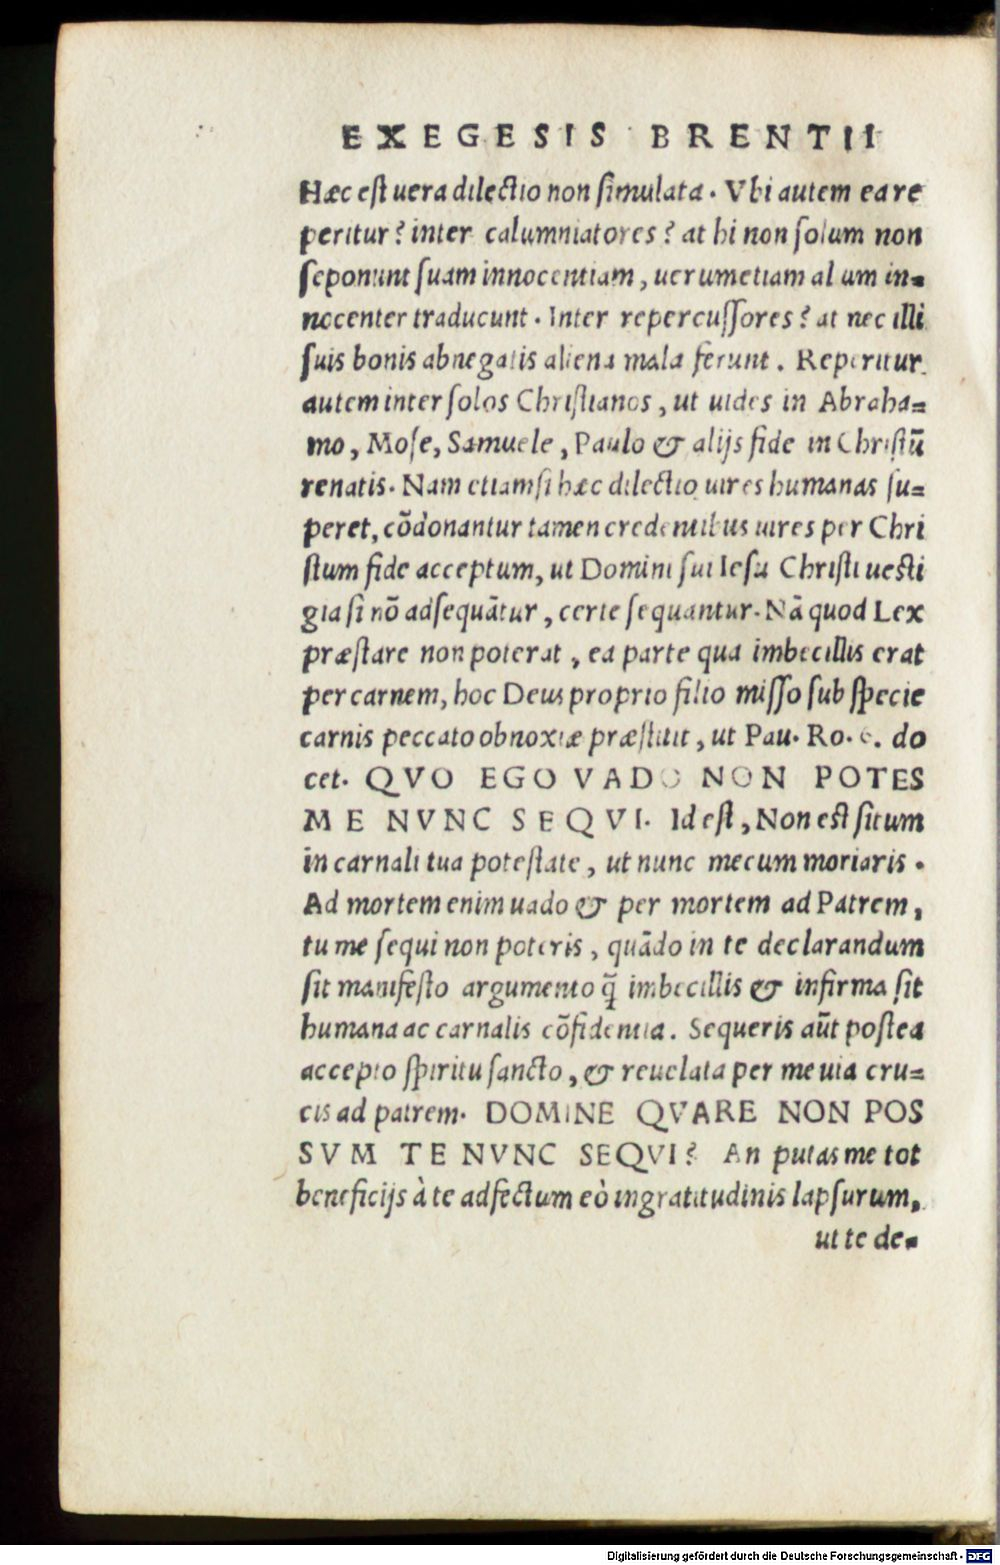 EXEGESIS BRENTII
Hæc est uera dilectio non simulata. Vbi autem ea re
peritur? inter calumniatores? at hi non solum non
seponunt suam innocentiam, uerumetiam al um in-
nocenter traducunt. Inter repercussores? at nec illi
suis bonis abnegatis aliena mala ferunt. Reperitur
autem inter solos Christianos, ut uides in Abraha=
mo, Mose, Samuele, Paulo & alijs fide in Christū
renatis. Nam etiamsi hæc dilectio uires humanas su=
peret, cōdonantur tamen credentibus uires per Chri
stum fide acceptum, ut Domini sui Iesu Christi uesti
gia si nō adsequātur, certe sequantur. Nā quod Lex
præstare non poterat, ea parte qua imbecillis erat
per carnem, hoc Deus proprio filio misso sub specie
carnis peccato obnoxiæ præstitit, ut Pau. Ro. do
cet. QVO EGO VADO NON POTES
ME NVNC SEQVI. Id est, Non est situm
in carnali tua potestate, ut nunc mecum moriaris.
Ad mortem enim uado & per mortem ad Patrem,
tu me sequi non poteris, quādo in te declarandum
sit manifesto argumento q̃ imbecillis & infirma sit
humana ac carnalis cōfidentia. Sequeris aūt postea
accepto spiritu sancto, & reuelata per me uia cru=
cis ad patrem. DOMINE QVARE NON POS
SVM TE NVNC SEQVI? An putas me tot
beneficijs à te adfectum eò ingratitudinis lapsurum,
ut te de-
Digitalisierung gefördert durch die Deutsche Forschungsgemeinschaft - DFG